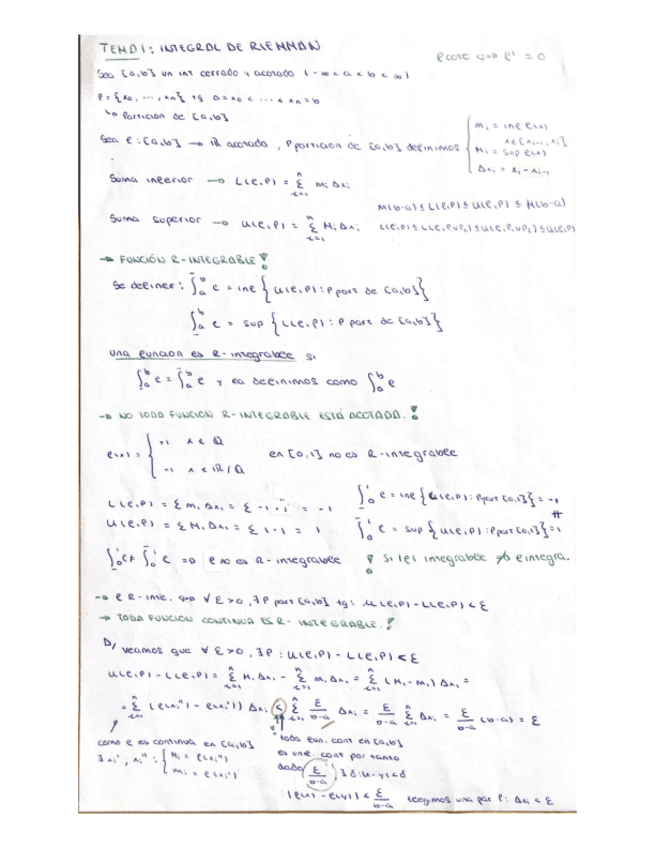 TEMA 1: INTEGRAL DE RIEMMAN
f cte ⟺ f' = 0
Sea [a,b] un int cerrado y acotado (-∞<a<b<∞)
P = {x₀, ..., xₙ} tq a=x₀ < ... < xₙ=b
↳ Partición de [a,b]
Sea f: [a,b] → ℝ acotada, P partición de [a,b] definimos { mᵢ = inf f(x)
x∈[xᵢ₋₁, xᵢ]
Mᵢ = sup f(x)
Δxᵢ = xᵢ - xᵢ₋₁
Suma inferior → L(f,P) = Σᵢ₌₁ⁿ mᵢ Δxᵢ
m(b-a) ≤ L(f,P) ≤ U(f,P) ≤ M(b-a)
Suma superior → U(f,P) = Σᵢ₌₁ⁿ Mᵢ Δxᵢ
→ FUNCIÓN R-INTEGRABLE!
Se definen: ∫̄ₐᵇ f = inf {U(f,P) : P part de [a,b]}
∫̲ₐᵇ f = sup {L(f,P) : P part de [a,b]}
una función es R-integrable si
∫̲ₐᵇ f = ∫̄ₐᵇ f y la definimos como ∫ₐᵇ f
→ NO TODA FUNCIÓN R-INTEGRABLE ESTÁ ACOTADA.!
f(x) = { +1 x ∈ ℚ
-1 x ∈ ℝ/ℚ
en [0,1] no es R-integrable
L(f,P) = Σ mᵢ Δxᵢ = Σ -1 · 1 = -1
U(f,P) = Σ Mᵢ Δxᵢ = Σ 1 · 1 = 1
∫₀¹ f = inf {U(f,P) : P part [0,1]} = -1
≠
∫̄₀¹ f = sup {U(f,P) : P part [0,1]} = 1
∫̲₀¹ f ≠ ∫̄₀¹ f ⇒ f no es R-integrable
! Si |f| integrable ⇏ f integra.
→ f R-inte. ⟺ ∀ ε>0, ∃ P part [a,b] tq: U(f,P) - L(f,P) < ε
→ TODA FUNCIÓN CONTINUA ES R-INTEGRABLE.!
D/ veamos que ∀ ε>0, ∃ P : U(f,P) - L(f,P) < ε
U(f,P) - L(f,P) = Σᵢ₌₁ⁿ Mᵢ Δxᵢ - Σᵢ₌₁ⁿ mᵢ Δxᵢ = Σᵢ₌₁ⁿ (Mᵢ - mᵢ) Δxᵢ =
= Σᵢ₌₁ⁿ (f(xᵢ'') - f(xᵢ')) Δxᵢ < Σᵢ₌₁ⁿ ε/(b-a) Δxᵢ = ε/(b-a) Σᵢ₌₁ⁿ Δxᵢ = ε/(b-a) (b-a) = ε
como f es continua en [a,b]
∃ xᵢ', xᵢ'' : { Mᵢ = f(xᵢ'')
mᵢ = f(xᵢ')
toda fun. cont en [a,b]
es unif. cont por tanto
dado ε/(b-a), ∃ δ : |x-y| < δ
: |f(x) - f(y)| < ε/(b-a) cogemos una par P : Δxᵢ < ε